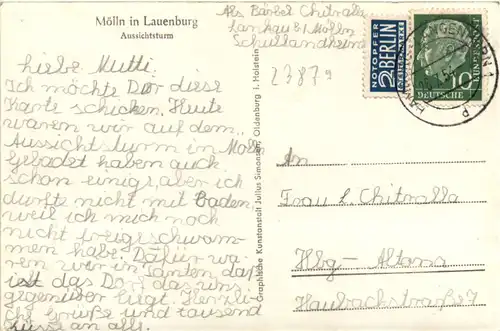 Mölln in Lauenburg
Aussichtsturm
Abs Bärbel Chitralla
Lankau b/ Mölln
Schullandheim
23879
NOTOPFER
2 BERLIN
STEUERMARKE
10
DEUTSCHE BUNDESPOST
Liebe Mutti!
Ich möchte Dir diese
Karte schicken. Heute
waren wir auf dem
Aussichtsturm in Mölln
Gebadet haben auch
schon einige, aber ich
durfte nicht mit Baden,
weil ich mich noch
nicht freigeschwom-
men habe. Dafür wa-
ren wir in Panten daß
ist das Dorf das uns
gegenüber liegt. Herzli-
che Grüße und tausend
Küsse an alle.
Graphische Kunstanstalt Julius Simonsen, Oldenburg i. Holstein
An
Frau L. Chitralla
Hbg-Altona
Haubachstraße 7